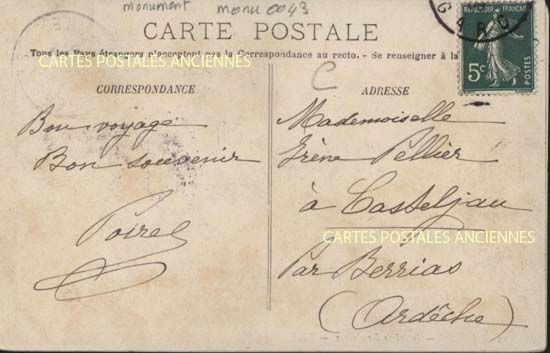 monument monu 0043
CARTE POSTALE
Tous les Pays étrangers n'acceptent pas la Correspondance au recto. - Se renseigner à la
CARTES POSTALES ANCIENNES
C
CORRESPONDANCE
Bon voyage
Bon souvenir
Poirel
ADRESSE
Mademoiselle
Irène Pellier
à Casteljau
CARTES POSTALES ANCIENNES
Par Berrias
(Ardèche)
FRANÇAISE
5c
POSTES